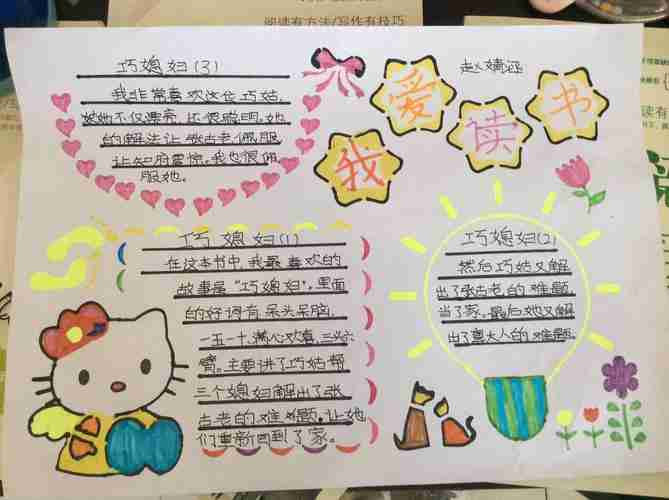 阅读有方法/写作有技巧
巧媳妇(3)
我非常喜欢这位巧姑,
她不仅漂亮,还很聪明,她
的解法让张古老佩服
让知府震惊。我也很佩
服她。
我爱读书
赵婧
巧媳妇(1)
在这本书中,我最喜欢的
故事是“巧媳妇”。里面
的好词有,呆头呆脑,
一五一十,满心欢喜,三头六
臂。主要讲了巧姑帮
三个媳妇解出了张
古老的难难题,让她
们重新回到了家。
巧媳妇(2)
然后巧姑又解
出了张古老的难题,
当了家。最后她又解
出了大人的难题。